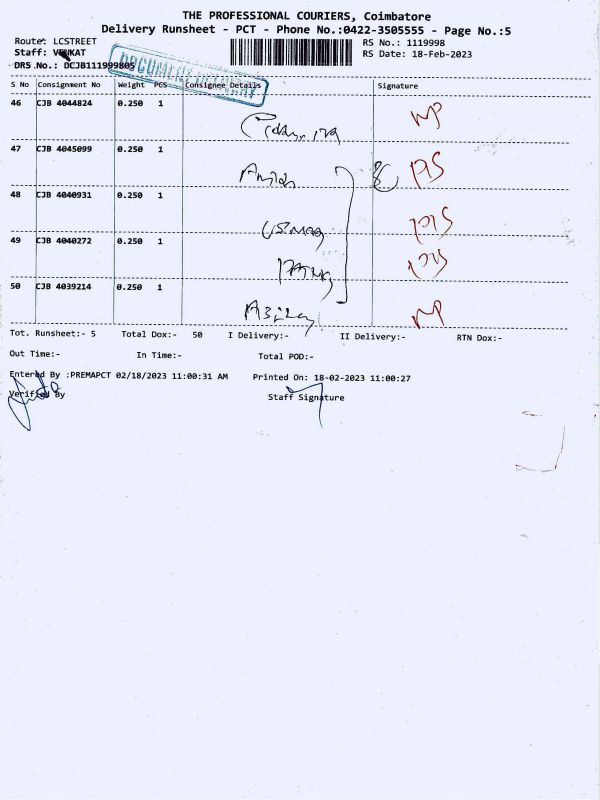 THE PROFESSIONAL COURIERS, Coimbatore
Delivery Runsheet - PCT - Phone No.:0422-3505555 - Page No.:5
Route: LCSTREET
RS No.: 1119998
Staff: VENKAT
RS Date: 18-Feb-2023
DRS.No.: DCJB111999805
DOCUMENT DELIVERY
S No Consignment No Weight PCS Consignee Details Signature
46 CJB 4044824 0.250 1
47 CJB 4045099 0.250 1
48 CJB 4040931 0.250 1
49 CJB 4040272 0.250 1
50 CJB 4039214 0.250 1
Tot. Runsheet:- 5 Total Dox:- 50 I Delivery:- II Delivery:- RTN Dox:-
Out Time:- In Time:- Total POD:-
Entered By :PREMAPCT 02/18/2023 11:00:31 AM Printed On: 18-02-2023 11:00:27
Verified By Staff Signature